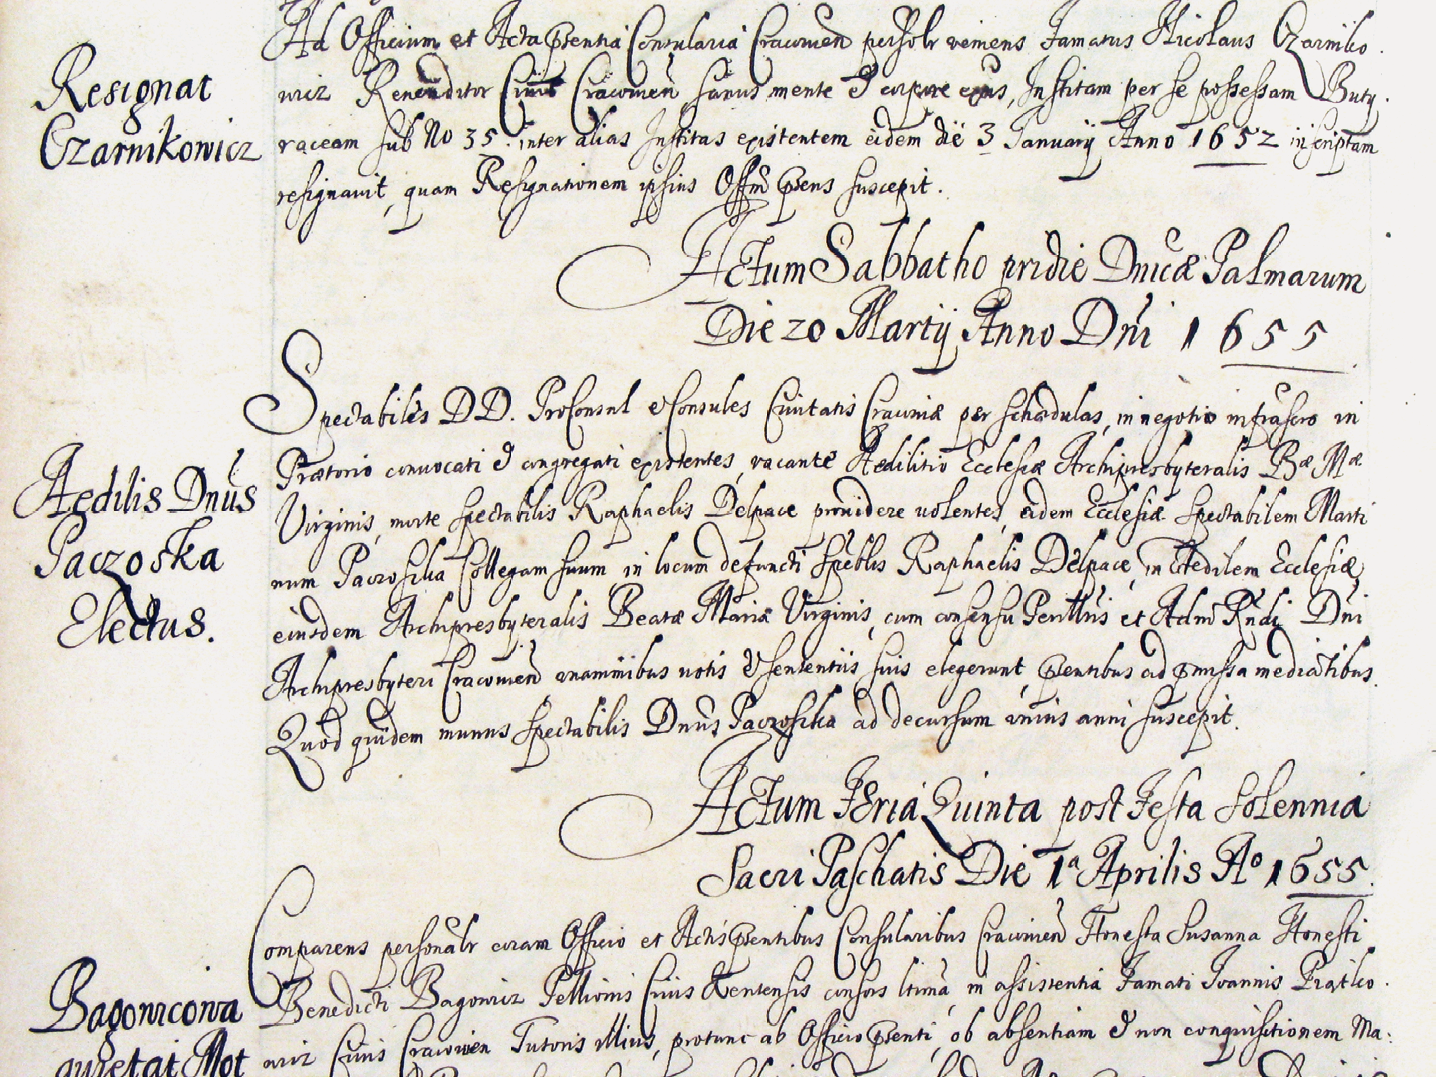 Ad Officium et Acta pñtia Consularia Cracovień personalr veniens Famatus Nicolaus Czarniko
Resignat
Czarnikowicz
wicz Renenditor Civis Cracovień sanus mente & corpore exñs, Institam per se possessam Buty
raceam sub No 35. inter alias Institas existentem eidem die 3 Januarij Anno 1652 inscriptam
resignavit, quam Resignationem ipsius Offm pñs suscepit.
Actum Sabbatho pridie Dnicæ Palmarum
Die 20 Martij Anno Dñi 1655
Spectabiles DD. ProConsul & Consules Civitatis Cracoviæ per schædulas, in negotio infrascro in
Aedilis Dnus
Paczoska
Electus.
Prætorio convocati & congregati existentes, vacante Aedilitio Ecclesiæ Archipresbyteralis Bæ Mæ
Virginis, morte spectabilis Raphaelis Delpace providere volentes, eidem Ecclesiæ Spectabilem Marti
num Paczoszka Collegam suum in locum defuncti Spectblis Raphaelis Delpace, in Aedilem Ecclesiæ
eiusdem Archipresbyteralis Beatæ Mariæ Virginis, cum consensu Perillris et Adm Rñdi Dni
Archipresbyteri Cracovień unanimibus votis & sententiis suis elegerunt, pñtibus ad præmissa mediantibus.
Quod quidem munus Spectabilis Dnus Paczoszka ad decursum unius anni suscepit.
Actum Feria Quinta post Festa Solennia
Sacri Paschatis Die 1ª Aprilis Aº 1655.
Comparens personalr coram Officio et Actis pñtibus Consularibus Cracovień Honesta Susanna Honesti
Bagowicowa
quietat Mot
Benedicti Bagowicz Pellionis Civis Kentensis consors ltima, in assistentia Famati Joannis Piątko
wicz Civis Cracovien Tutoris illius, protunc ab Officio pñti, ob absentiam & non conquisitionem Ma: